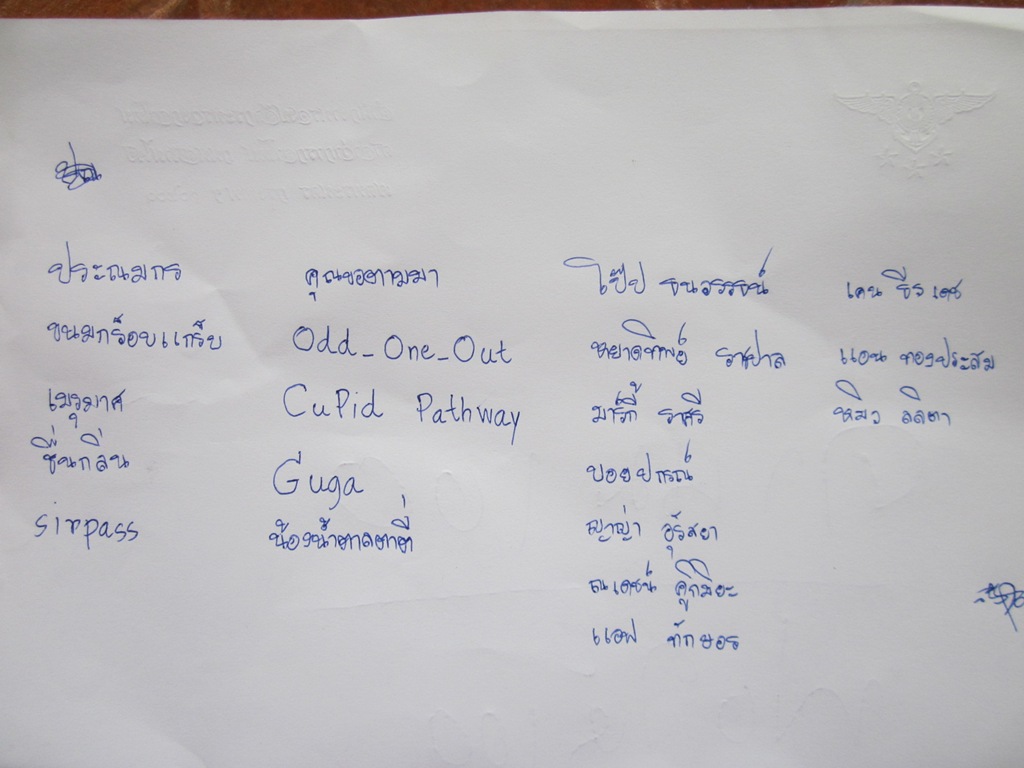 ประณมกร คุณขอตามมา โป๊ป ธนวรรธน์ เคน ธีรเดช
ขนมกร็อบแกร็บ Odd_One_Out หยาดทิพย์ ราชปาล แอน ทองประสม
เมรุมาศ Cupid Pathway มาร์กี้ ราศรี หมิว ลลิตา
ชื่นกลิ่น Guga บอย ปกรณ์
sirpass น้องน้ำตาลตาตี่ ญาญ่า อุรัสยา
ณเดชน์ คูกิมิยะ
แอฟ ทักษอร